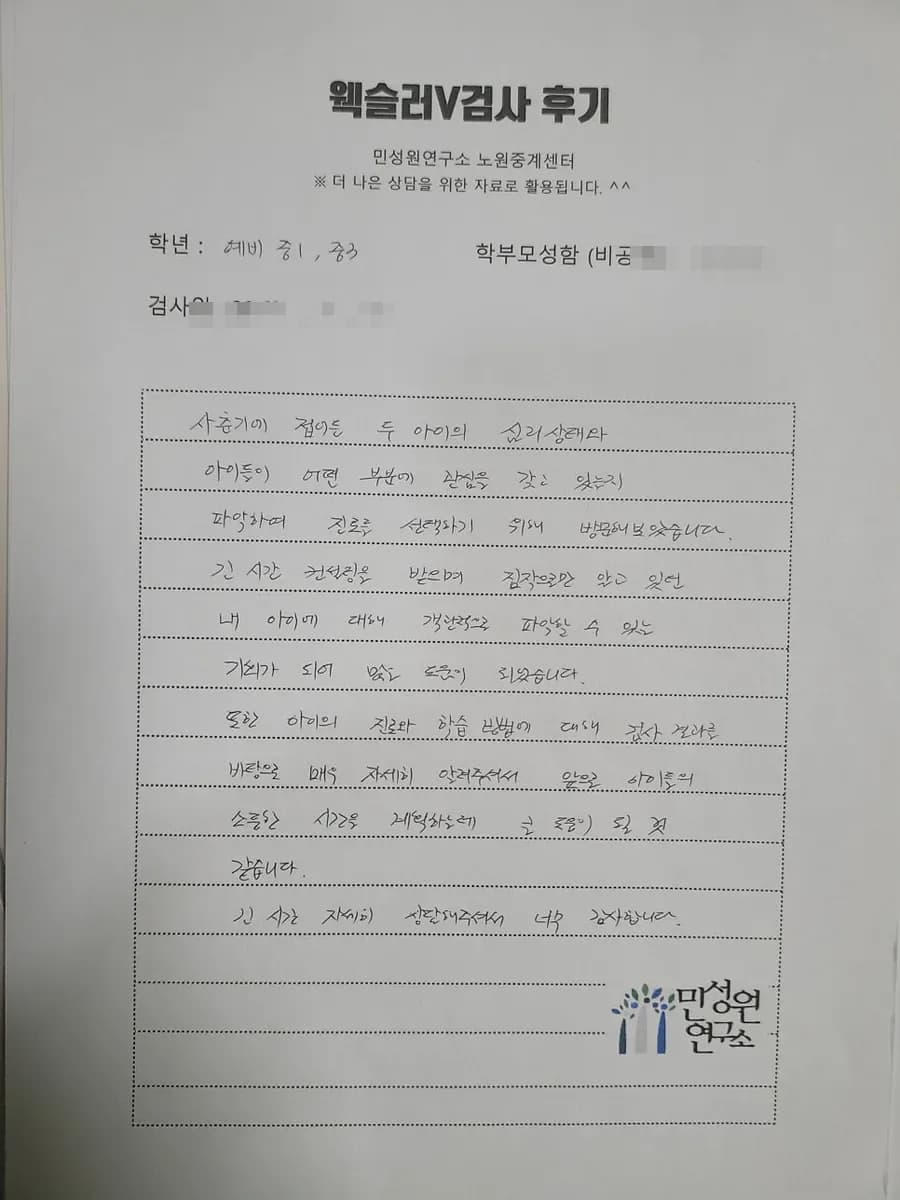 웩슬러V검사 후기
민성원연구소 노원중계센터
※ 더 나은 상담을 위한 자료로 활용됩니다. ^^
학년 : 예비 중1, 중3
학부모성함 (비공
검사
사춘기에 접어든 두 아이의 심리상태와
아이들이 어떤 부분에 관심을 갖고 있는지
파악하여 진로를 선택하기 위해 방문해보았습니다.
긴 시간 컨설팅을 받으며 짐작으로만 알고 있던
내 아이에 대해 객관적으로 파악할 수 있는
기회가 되어 많은 도움이 되었습니다.
또한 아이의 진로와 학습 방법에 대해 검사 결과를
바탕으로 매우 자세히 알려주셔서 앞으로 아이들의
소중한 시간을 계획하는데 큰 도움이 될 것
같습니다.
긴 시간 자세히 상담해주셔서 너무 감사합니다.
민성원
연구소